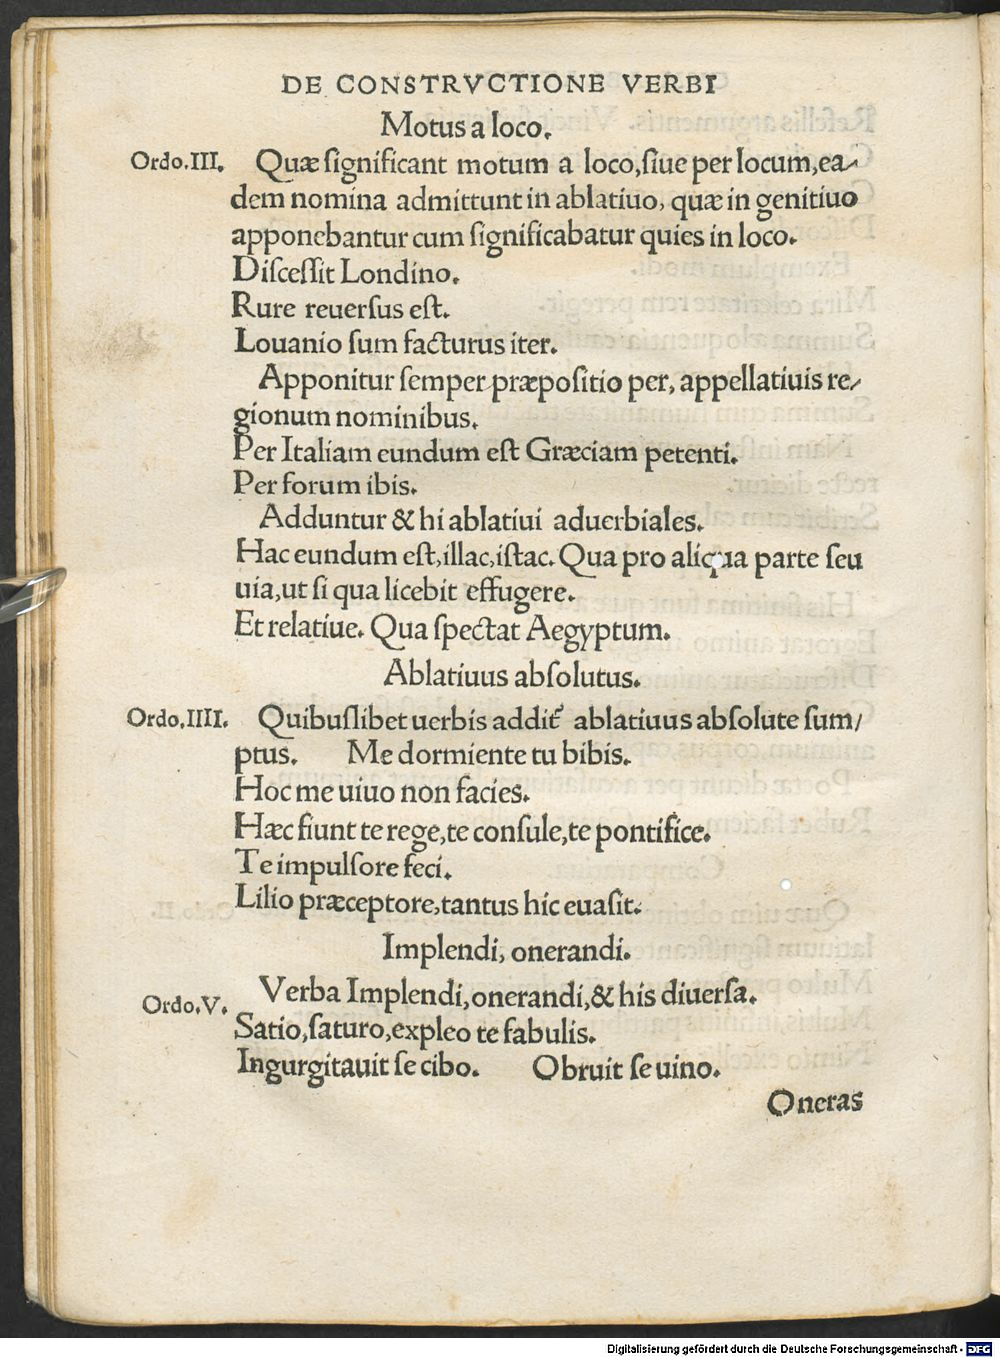 DE CONSTRVCTIONE VERBI
Motus a loco.
Ordo.III. Quæ ſignificant motum a loco,ſiue per locum,ea-
dem nomina admittunt in ablatiuo, quæ in genitiuo
apponebantur cum ſignificabatur quies in loco.
Diſceſſit Londino.
Rure reuerſus eſt.
Louanio ſum facturus iter.
Apponitur ſemper præpoſitio per, appellatiuis re-
gionum nominibus.
Per Italiam eundum eſt Græciam petenti.
Per forum ibis.
Adduntur & hi ablatiui aduerbiales.
Hac eundum eſt,illac,iſtac. Qua pro aliqua parte ſeu
uia,ut ſi qua licebit effugere.
Et relatiue. Qua ſpectat Aegyptum.
Ablatiuus abſolutus.
Ordo.IIII. Quibuſlibet uerbis addit᷑ ablatiuus abſolute ſum/
ptus. Me dormiente tu bibis.
Hoc me uiuo non facies.
Hæc fiunt te rege,te conſule,te pontifice.
Te impulſore feci.
Lilio præceptore,tantus hic euaſit.
Implendi, onerandi.
Ordo.V. Verba Implendi,onerandi,& his diuerſa.
Satio,ſaturo,expleo te fabulis.
Ingurgitauit ſe cibo. Obruit ſe uino.
Oneras
Digitalisierung gefördert durch die Deutsche Forschungsgemeinschaft - DFG